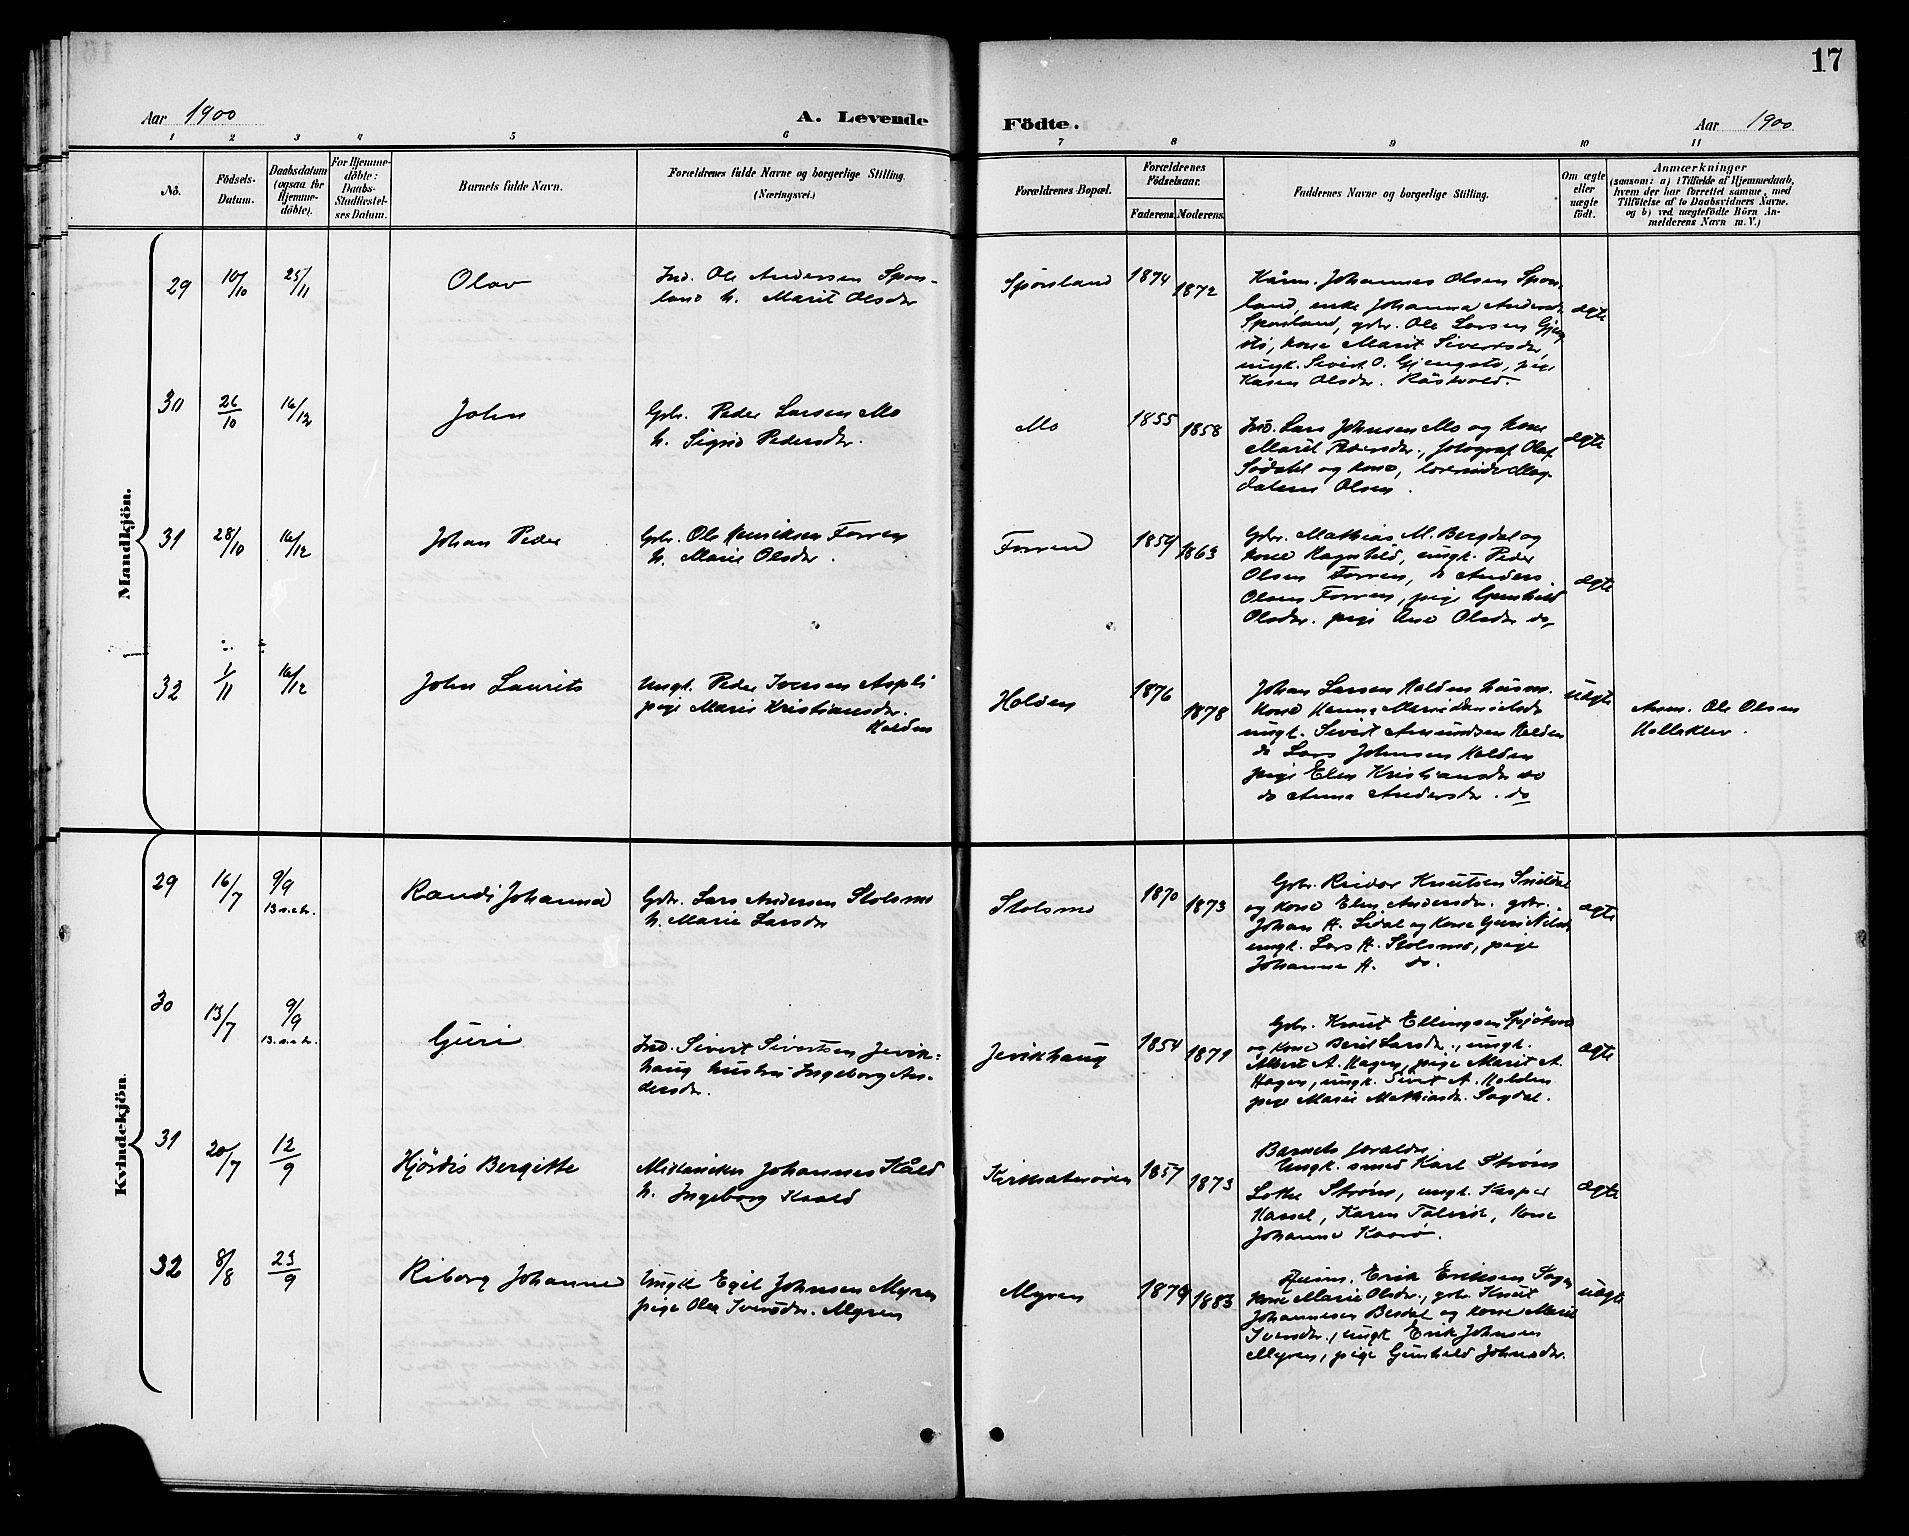 17
Aar 1900
A. Levende
Födte.
Aar 1900
1 2 3 4 5 6 7 8 9 10 11
No.
Födsels-
Datum.
Daabsdatum
(ogsaa for
Hjemme-
döbte).
For Hjemme-
döbte:
Daabs-
Stadfæstel-
ses Datum.
Barnets fulde Navn.
Forældrenes fulde Navne og borgerlige Stilling.
(Næringsvei.)
Forældrenes Bopæl.
Forældrenes
Födselsaar.
Faderens. Moderens.
Faddernes Navne og borgerlige Stilling.
Om ægte
eller
uægte
födt.
Anmærkninger
(saasom: a) i Tilfælde af Hjemmedaab,
hvem der har forrettet samme, med
Tilföielse af to Daabsvidners Navne.
og b) ved uægtefödte Börn An-
melderens Navn m. V.)
Mandkjön.
29 10/10 25/11 Olav
Ind. Ole Andersen Spors-
land h. Marit Olsdr
Sporsland 1874 1872
Kårm. Johannes Olsen Spors-
land, enke Johanna Andersdr
Sporsland, gbr. Ole Larsen Gjeng-
stö, kone Marit Sivertsdr,
ungk. Sivert O. Gjengstö, pige
Karen Olsdr.
ægte
30 26/10 16/12 John
Gbr. Peder Larsen Mo
h. Sigrid Pedersdr.
Mo 1855 1858
Ind. Lars Johnsen Mo og kone
Marit Pedersdr., fotograf Olaf
Södahl og kone, lærerinde Mag-
dalene Olsen.
ægte
31 28/10 16/12 Johan Peder
Gbr. Ole Henriksen Forren
h. Marie Olsdr.
Forren 1859 1863
Gbr. Mathias M. Bergdal og
kone Ragnhild, ungk. Peder
Olsen Forren, do Anders
Olsen Forren, pige Gunhild
Olsdr. pige Ane Olsdr do
ægte
32 1/11 16/12 John Laurits
Ungk. Peder Iversen Aspli
pige Marie Kristiansdr.
Holden
Holden 1876 1878
Johan Larsen Holden husm.
kone Hanna Marie Danielsdr
ungk. Sivert Amundsen Holden
do Lars Johnsen Holden
pige Elen Kristiansdr do
do Anna Andersdr. do
uægte
Anm. Ole Olsen
Helleklev.
Kvindekjön.
29 16/7 9/9
13 s.e.tr.
Randi Johanna
Gbr. Lars Andersen Stolsmo
h. Marie Larsdr
Stolsmo 1870 1873
Gbr. Reidar Knutsen Snildal
og kone Elen Andersdr. gbr.
Johan A. Lidal og kone Guri Nilsdr
ungk. Lars A. Stolsmo, pige
Johanna A. do.
ægte
30 13/7 9/9
13. s.e.tr.
Guri
Ind. Sivert Sivertsen Jevik-
haug hustru Ingeborg An-
dersdr.
Jevikhaug 1854 1871
Gbr. Knut Ellingsen
og kone Berit Larsdr., ungk.
Albert A. Hagen, pige Marit A.
Hagen, ungk. Sivert A. Holden
pige Marie Mathiasdr. Sagdal.
ægte
31 20/7 12/9 Hjördis Bergitte
Johannes Kåld
h. Ingeborg Kaald
Kirksætersören 1857 1873
Barnets foreldre.
Ungk. smed Karl Ström
Lotte Ström, ungk. Kasper
Hassel, Karen Talvik, kone
Johanna
ægte
32 8/8 23/9 Riborg Johanne
Ungk. Egil Johnsen Myren
pige Olea Iversdr. Myren
Myren 1879 1883
Husm. Erik Eriksen
kone Marie Olsdr., gbr Knut
Johannesen Besdal og kone Marit
Iversdr., ungk Erik Johnsen
Myren, pige Gunhild Johnsdr.
uægte